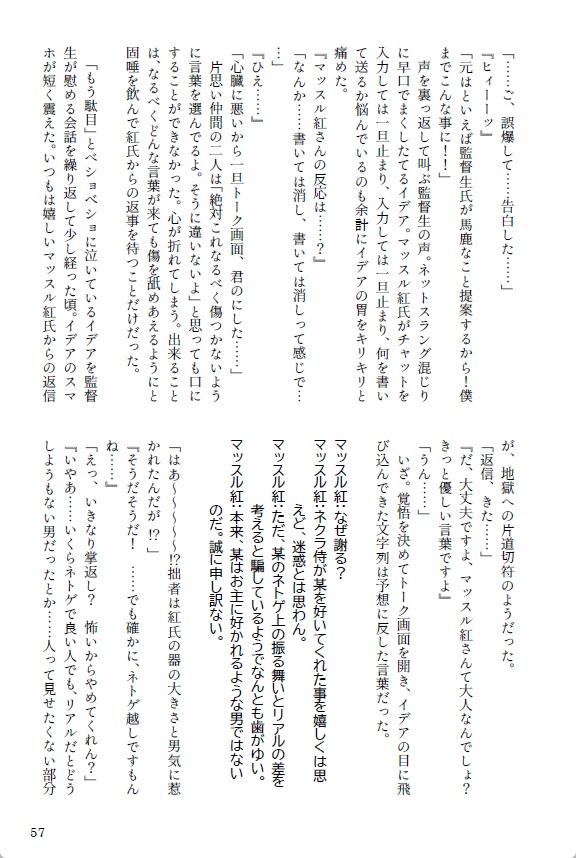 「……ご、誤爆して……告白した……」
『ヒィーーッ』
「元はといえば監督生氏が馬鹿なこと提案するから！僕
までこんな事に！！」
　声を裏っ返して叫ぶ監督生の声。ネットスラング混じり
に早口でまくしたてるイデア。マッスル紅氏がチャットを
入力しては一旦止まり、入力しては一旦止まり、何を書い
て送るか悩んでいるのも余計にイデアの胃をキリキリと
痛めた。
『マッスル紅さんの反応は……？』
「なんか……書いては消し、書いては消しって感じで…
…」
『ひえ……』
「心臓に悪いから一旦トーク画面、君のにした……」
　片思い仲間の二人は「絶対これなるべく傷つかないよう
に言葉を選んでるよ。そうに違いないよ」と思っても口に
することができなかった。心が折れてしまう。出来ること
は、なるべくどんな言葉が来ても傷を舐めあえるようにと
固唾を飲んで紅氏からの返事を待つことだけだった。
「もう駄目」とベショベショに泣いているイデアを監督
生が慰める会話を繰り返して少し経った頃。イデアのスマ
ホが短く震えた。いつもは嬉しいマッスル紅氏からの返信
が、地獄への片道切符のようだった。
「返信、きた……」
『だ、大丈夫ですよ、マッスル紅さんて大人なんでしょ？
きっと優しい言葉ですよ』
「うん……」
　いざ。覚悟を決めてトーク画面を開き、イデアの目に飛
び込んできた文字列は予想に反した言葉だった。
マッスル紅：なぜ謝る？
マッスル紅：ネクラ侍が某を好いてくれた事を嬉しくは思
えど、迷惑とは思わん。
マッスル紅：ただ、某のネトゲ上の振る舞いとリアルの差を
考えると騙しているようでなんとも歯がゆい。
マッスル紅：本来、某はお主に好かれるような男ではない
のだ。誠に申し訳ない。
「はあ～～～～～!?拙者は紅氏の器の大きさと男気に惹
かれたんだが!?」
『そうだそうだ！　……でも確かに、ネトゲ越しですもん
ね……』
「えっ、いきなり掌返し？　怖いからやめてくれん？」
『いやあ……いくらネトゲで良い人でも、リアルだとどう
しようもない男だったとか……人って見せたくない部分
57